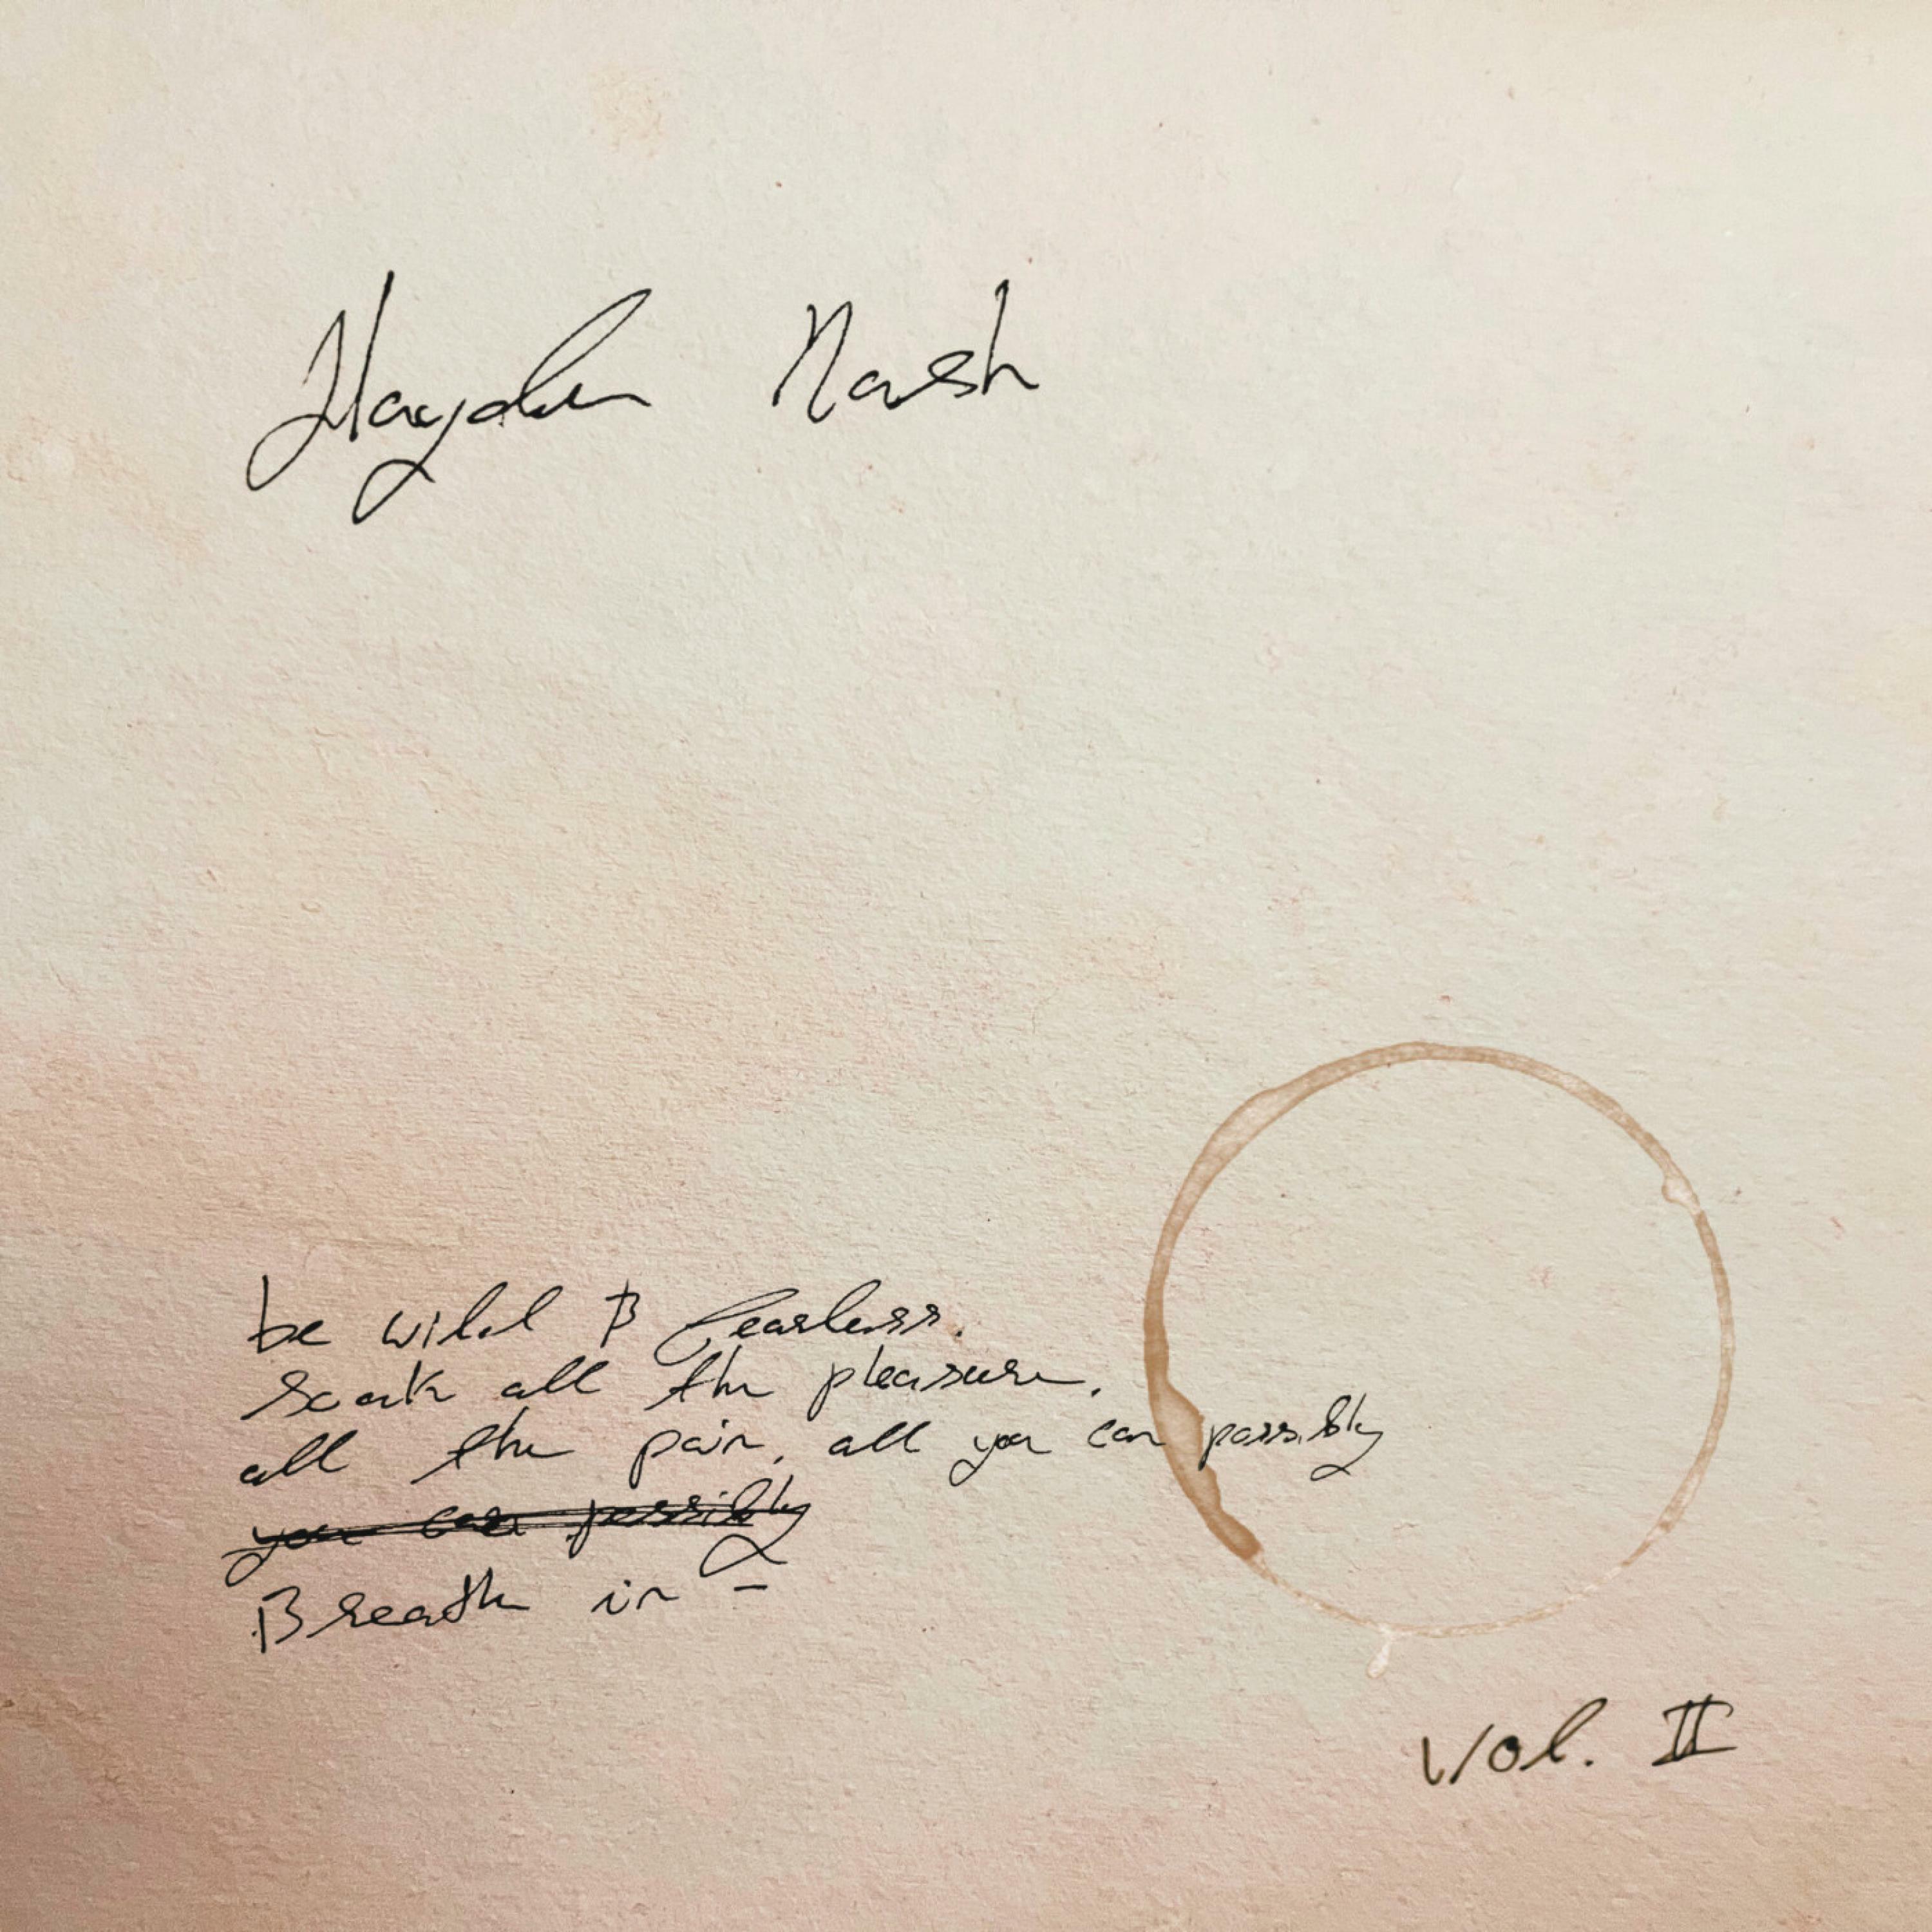 Hayden Nash
be wild & fearless.
soak all the pleasure.
all the pain, all you can possibly
you can possibly
Breath in -
Vol. II